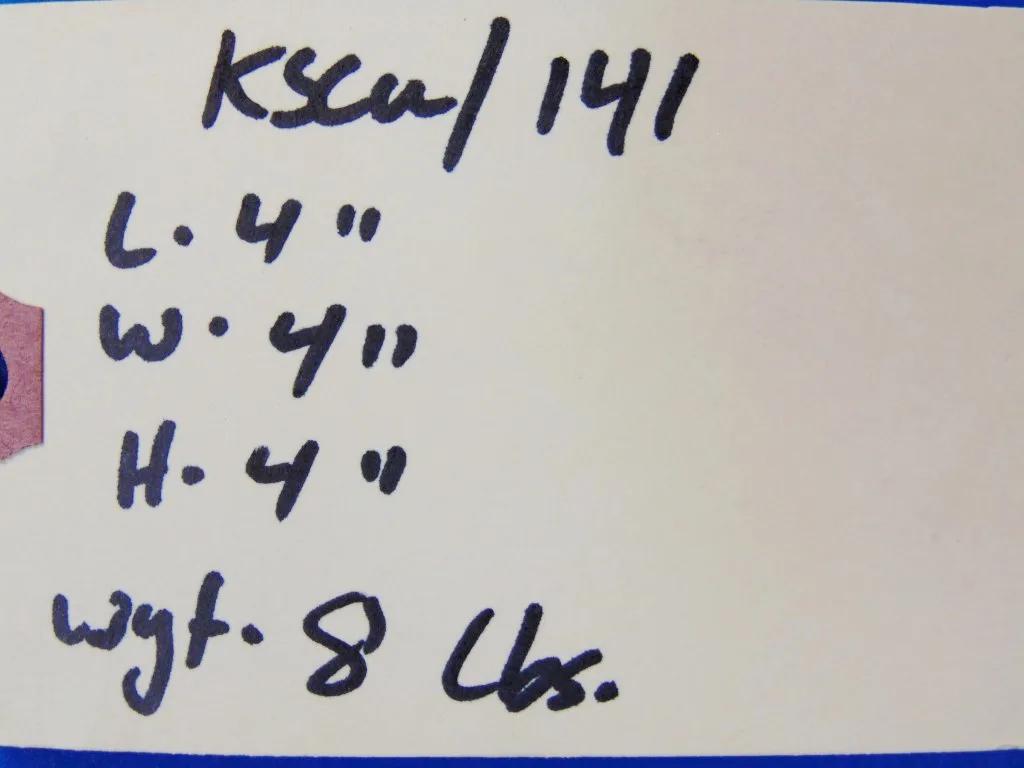 KSCU/141
L. 4"
W. 4"
H. 4"
wgt. 8 Lbs.